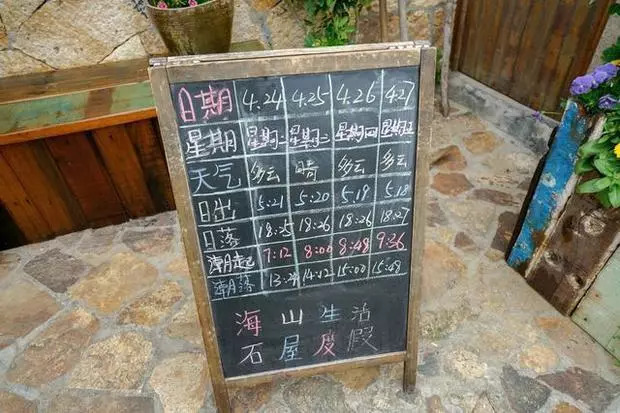 日期 4.24 4.25 4.26 4.27
星期 星期二 星期三 星期四 星期五
天气 多云 晴 多云 多云
日出 5:21 5:20 5:19 5:18
日落 18:25 18:26 18:26 18:27
潮起 7:12 8:00 8:48 9:36
潮落 13:24 14:12 15:00 15:48
海山生活
石屋度假